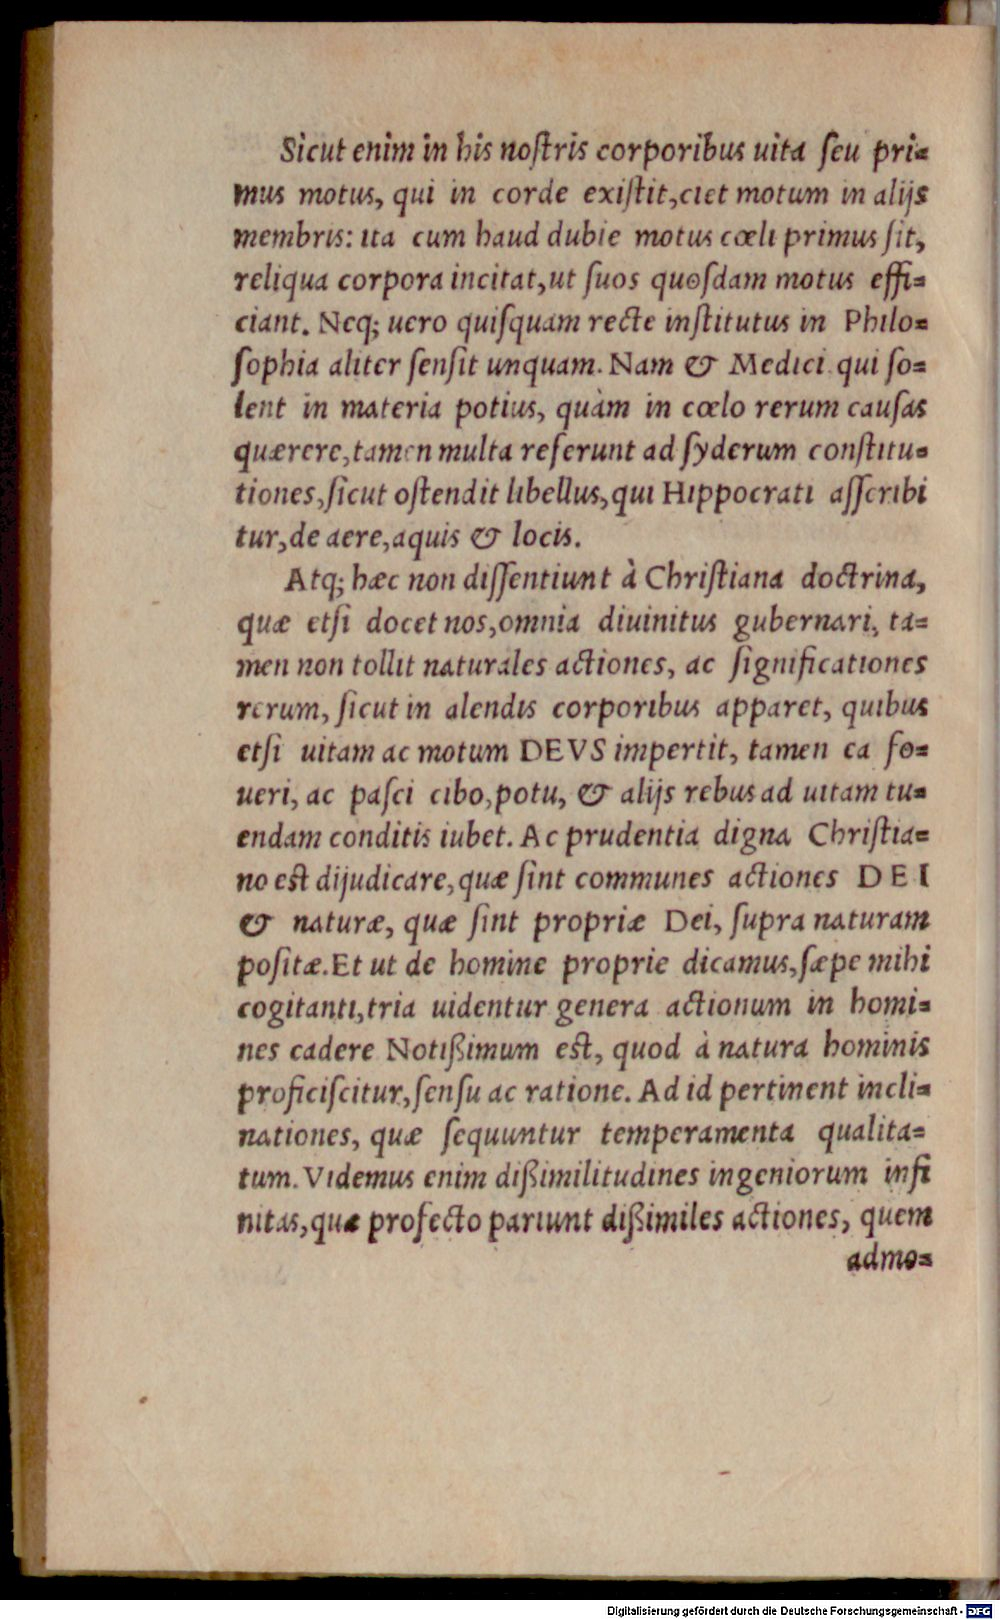 Sicut enim in his noſtris corporibus uita ſeu pri=
mus motus, qui in corde exiſtit, ciet motum in alijs
membris: ita cum haud dubie motus cœli primus ſit,
reliqua corpora incitat, ut ſuos quoſdam motus effi=
ciant. Neq; uero quiſquam recte inſtitutus in Philo=
ſophia aliter ſenſit unquam. Nam & Medici qui ſo=
lent in materia potius, quàm in cœlo rerum cauſas
quærere, tamen multa referunt ad ſyderum conſtitu=
tiones, ſicut oſtendit libellus, qui Hippocrati aſſcribi
tur, de aere, aquis & locis.
Atq; hæc non diſſentiunt à Chriſtiana doctrina,
quæ etſi docet nos, omnia diuinitus gubernari, ta=
men non tollit naturales actiones, ac ſignificationes
rerum, ſicut in alendis corporibus apparet, quibus
etſi uitam ac motum DEVS impertit, tamen ea fo=
ueri, ac paſci cibo, potu, & alijs rebus ad uitam tu=
endam conditis iubet. Ac prudentia digna Chriſtia=
no eſt dijudicare, quæ ſint communes actiones DEI
& naturæ, quæ ſint propriæ Dei, ſupra naturam
poſitæ. Et ut de homine proprie dicamus, ſæpe mihi
cogitanti, tria uidentur genera actionum in homi=
nes cadere Notißimum eſt, quod à natura hominis
proficiſcitur, ſenſu ac ratione. Ad id pertinent incli=
nationes, quæ ſequuntur temperamenta qualita=
tum. Videmus enim dißimilitudines ingeniorum infi
nitas, quæ profecto pariunt dißimiles actiones, quem
admo=
Digitalisierung gefördert durch die Deutsche Forschungsgemeinschaft - DFG